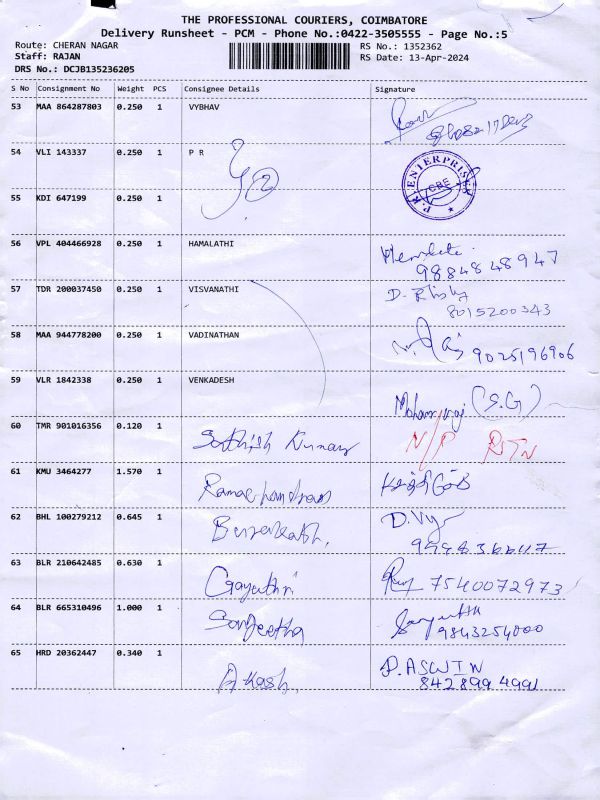 THE PROFESSIONAL COURIERS, COIMBATORE
Delivery Runsheet - PCM - Phone No.:0422-3505555 - Page No.:5
Route: CHERAN NAGAR RS No.: 1352362
Staff: RAJAN RS Date: 13-Apr-2024
DRS No.: DCJB135236205
S No Consignment No Weight PCS Consignee Details Signature
53 MAA 864287803 0.250 1 VYBHAV
54 VLI 143337 0.250 1 P R P.R. ENTERPRISES CBE
55 KDI 647199 0.250 1
56 VPL 404466928 0.250 1 HAMALATHI
9884848947
57 TDR 200037450 0.250 1 VISVANATHI
8015200343
58 MAA 944778200 0.250 1 VADINATHAN
9025196906
59 VLR 1842338 0.250 1 VENKADESH (S.G)
60 TMR 901016356 0.120 1 Sathish Kumar N/P RTN
61 KMU 3464277 1.570 1 Ramachandran
62 BHL 100279212 0.645 1
63 BLR 210642485 0.630 1 Gayathri 7540072973
64 BLR 665310496 1.000 1 Sangeetha
9843254000
65 HRD 20362447 0.340 1 Akash P. ASWIN
8428994991